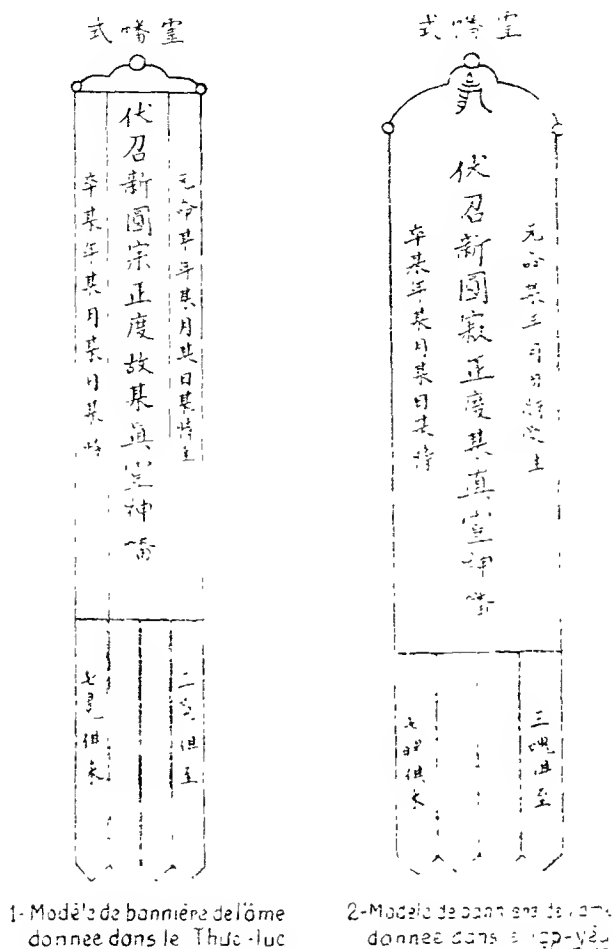 靈幡式
元命某年某月某日某時生
伏召新圓宗正度故某眞靈神幡
卒某年某月某日某時
俱至
七魄俱來
1-Modèle de bannière de l'âme
donnée dans le Thuc-luc
靈幡式
元命某
伏召新圓寂正度某眞靈神幡
卒某年某月某日某時
三魂俱至
七魄俱來
2-Modèle de bannière de l'âme
donnée dans le